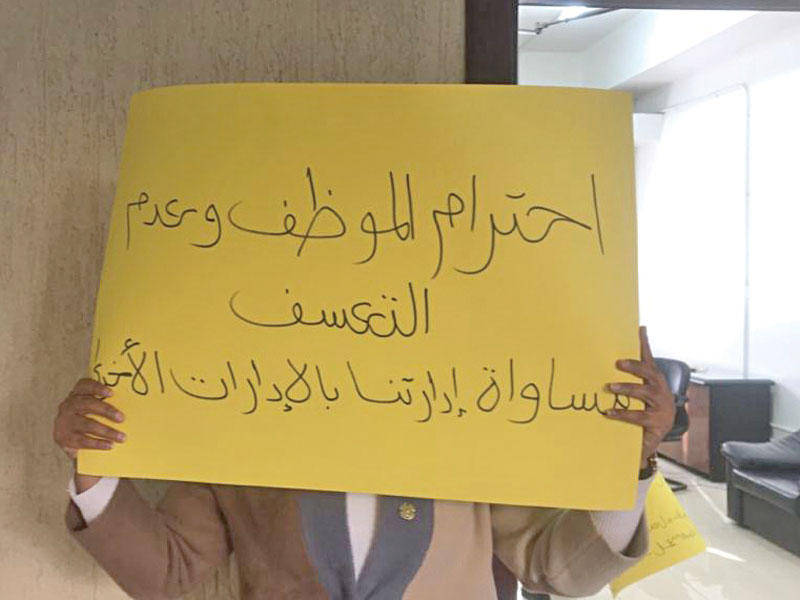 احترام الموظف وعدم
التعسف
مساواة إدارتنا بالإدارات الأخرى